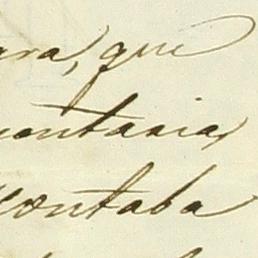 ara, que
ontaria
contaba